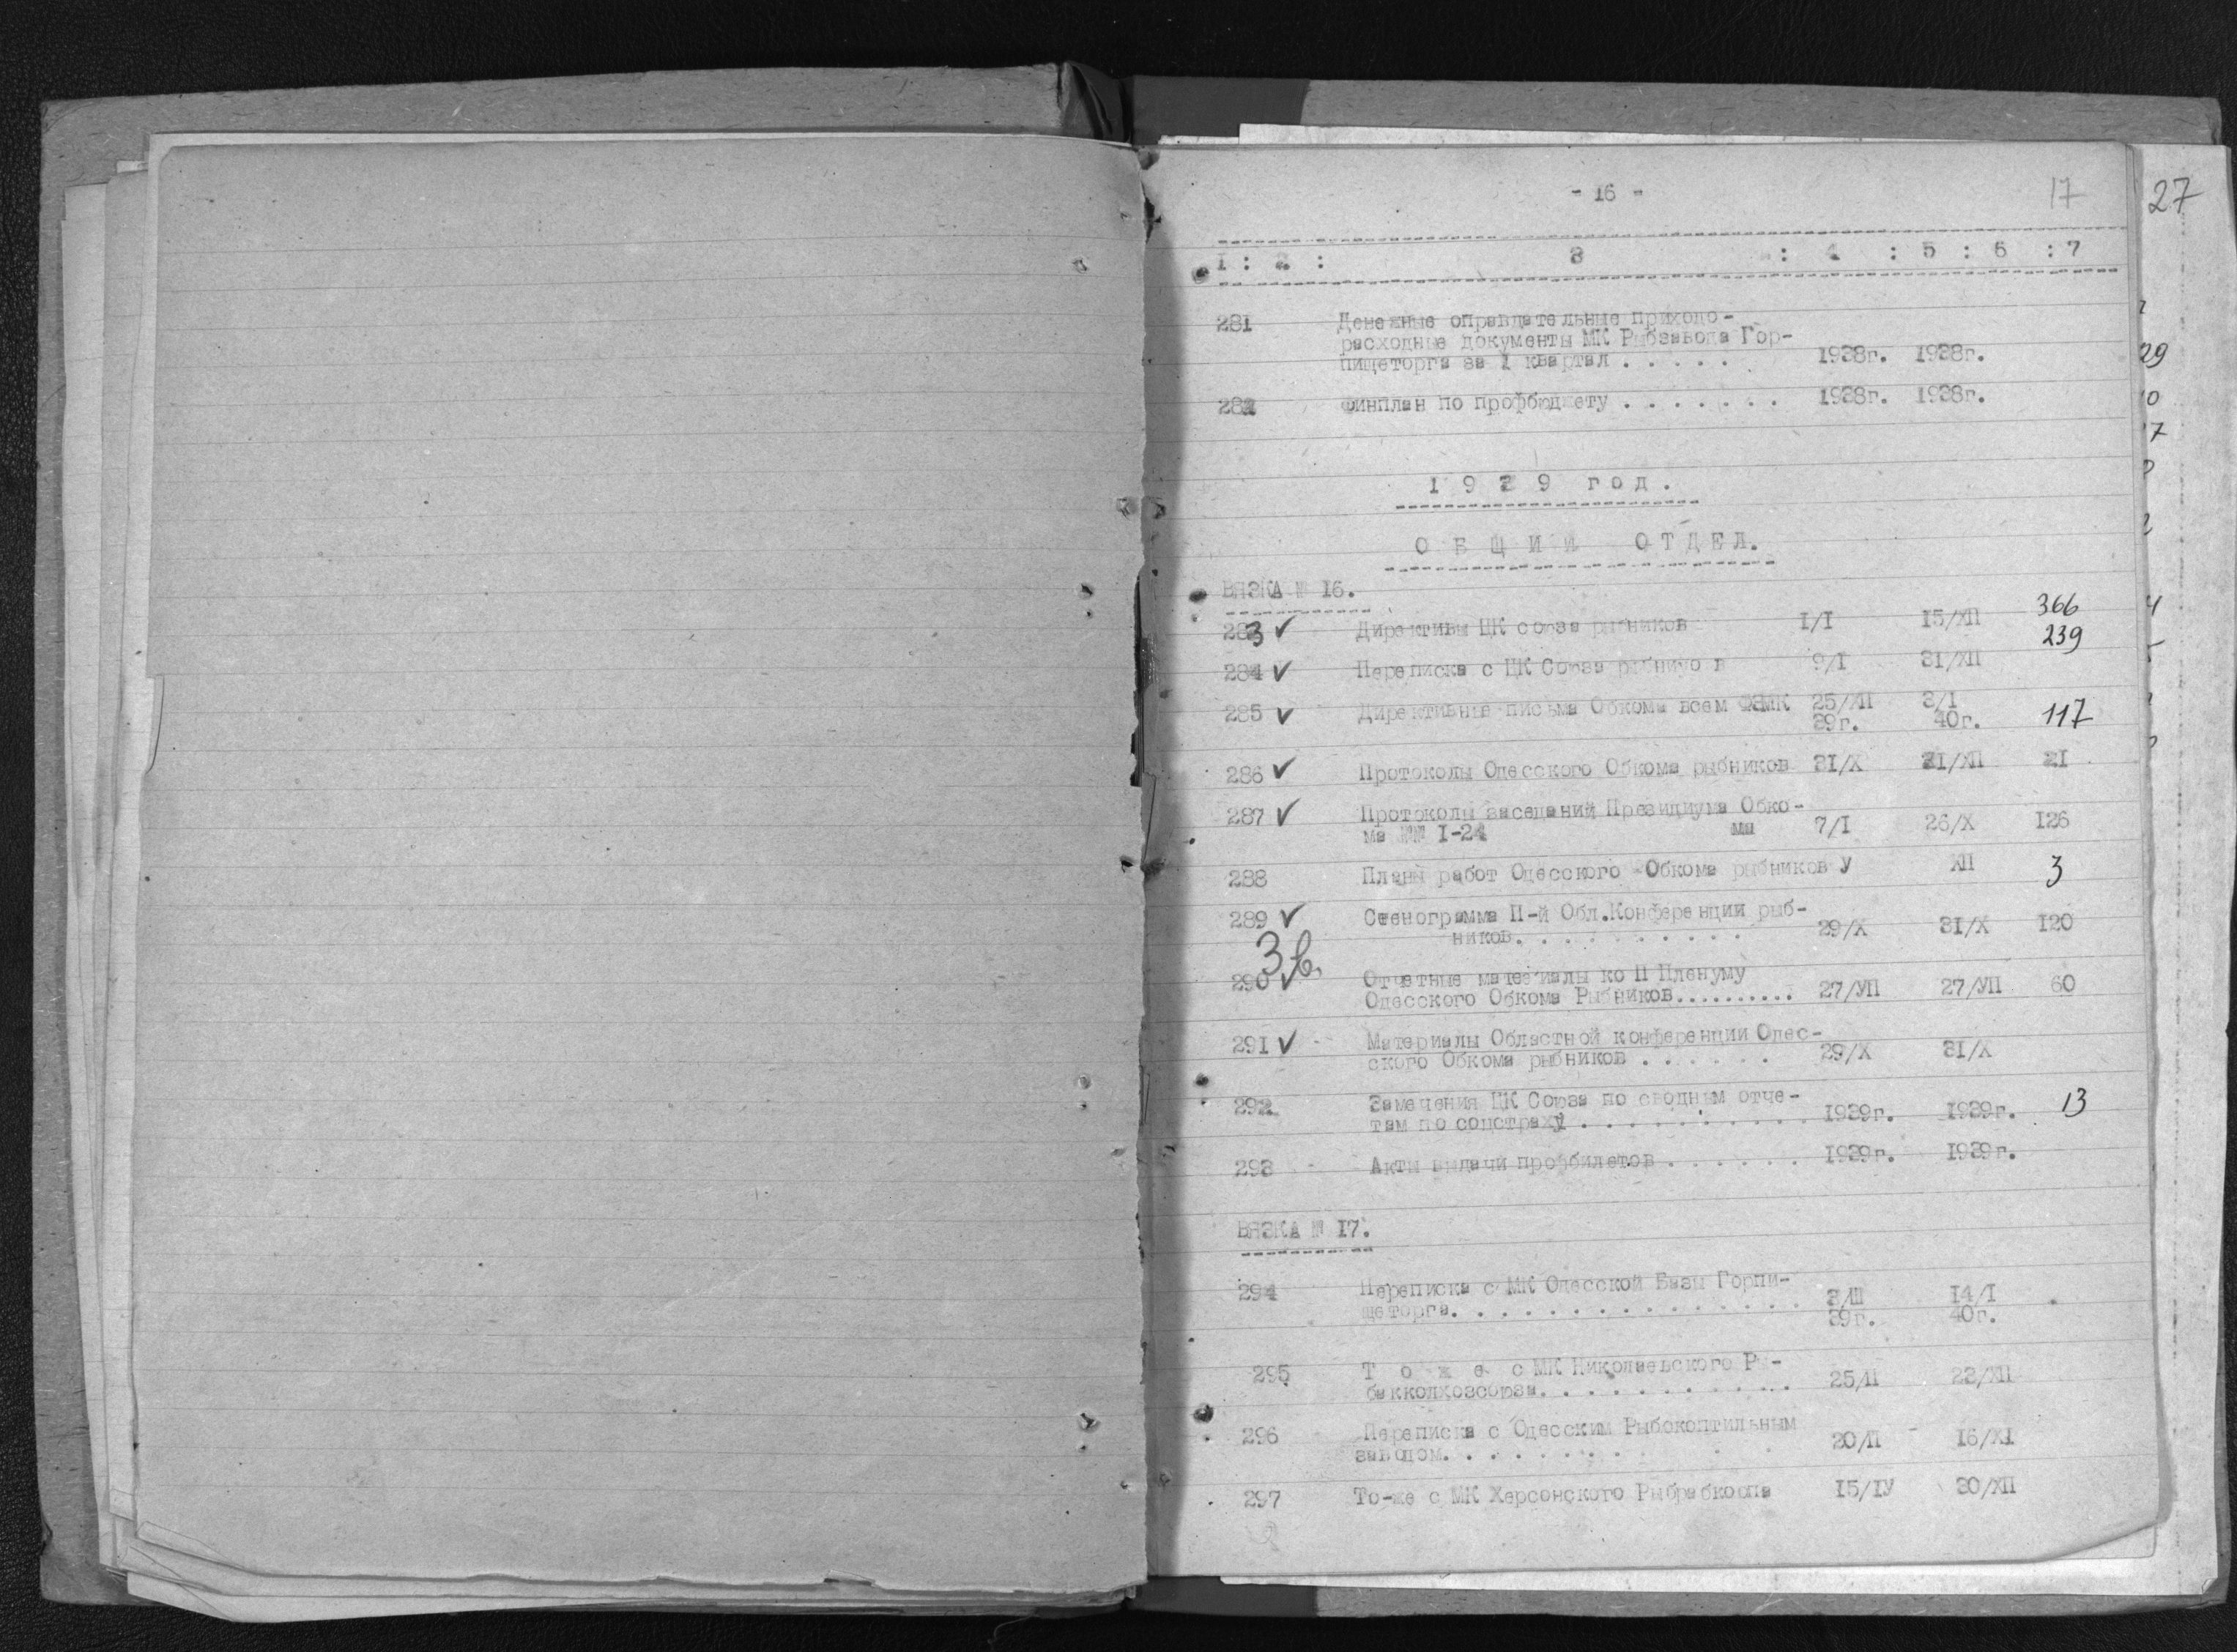 - 16 -
17
27
1 : 2 : 3 : 4 : 5 : 6 : 7
281 Денежные оправдательные приходо-
расходные документы МК Рыбзавода Гор-
пищеторга за 1 квартал . . . . . 1938г. 1938г.
29
282 Финплан по профбюджету . . . . . . . 1938г. 1938г.
1939 год.
ОБЩИЙ ОТДЕЛ.
ВЯЗКА № 16.
283 ✓ Директивы ЦК союза рыбников 1/I 15/XII 366
284 ✓ Переписка с ЦК Союза рыбников 9/I 31/XII 239
285 ✓ Директивные письма Обкома всем ФЗМК 25/XII 3/1
39г. 40г. 117
286 ✓ Протоколы Одесского Обкома рыбников 31/X 31/XII 21
287 ✓ Протоколы заседаний Президиума Обко-
ма №№ I-24 7/I 26/X 126
288 Планы работ Одесского Обкома рыбников У XII 3
289 ✓ Стенограмма П-й Обл.Конференции рыб-
ников. . . . . . . . . . 29/X 31/X 120
290 ✓ Отчетные материалы ко П Пленуму
Одесского Обкома Рыбников.......... 27/УП 27/УП 60
291 ✓ Материалы Областной конференции Одес-
ского Обкома рыбников . . . . . . 29/X 31/X
292 Замечения ЦК Союза по сводным отче-
там по соцстраху . . . . . . . . . . . 1939г. 1939г. 13
293 Акты выдачи профбилетов . . . . . . 1939г. 1939г.
ВЯЗКА № 17.
294 Переписка с МК Одесской Базы Горпи-
щеторга. . . . . . . . . . . . . . . . 3/Ш 14/I
39г. 40г.
295 Т о ж е с МК Николаевского Ры-
бакколхозсоюза. . . . . . . . . . . . 25/П 23/XII
296 Переписка с Одесским Рыбокоптильным
заводом. . . . . . . . . . 20/П 16/XI
297 То-же с МК Херсонского Рыбрабкоопа 15/IУ 30/XII